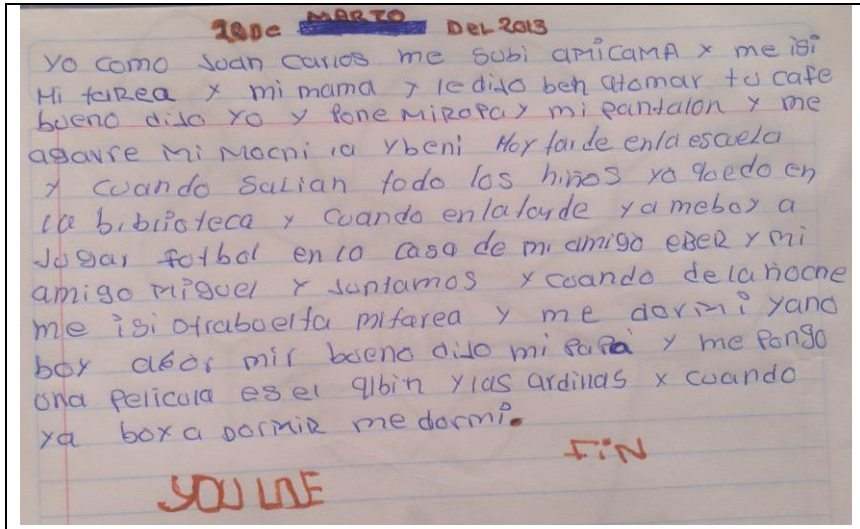 18 De MARTO Del 2013
yo como Juan carlos me subi amicama y me isi
Mi taRea y mi mama y le dijo ben atomar tu cafe
bueno dijo yo y Pone MiROPay mi pantalon y me
agavre mi mochi la y beni Hoy tarde enla escuela
y cuando Salian todo los niños yo quedo en
la biblioteca y cuando en la tarde ya meboy a
Jugar fotbol en la casa de mi amigo eBeR y mi
amigo Miguel y Juntamos y cuando de la noche
me isi otrabuelta mi tarea y me dormi yano
boy abor mir bueno dijo mi PaPa y me Pongo
una Pelicula es el albin y las ardillas y cuando
ya boy a DORMIR me dormi.
FiN